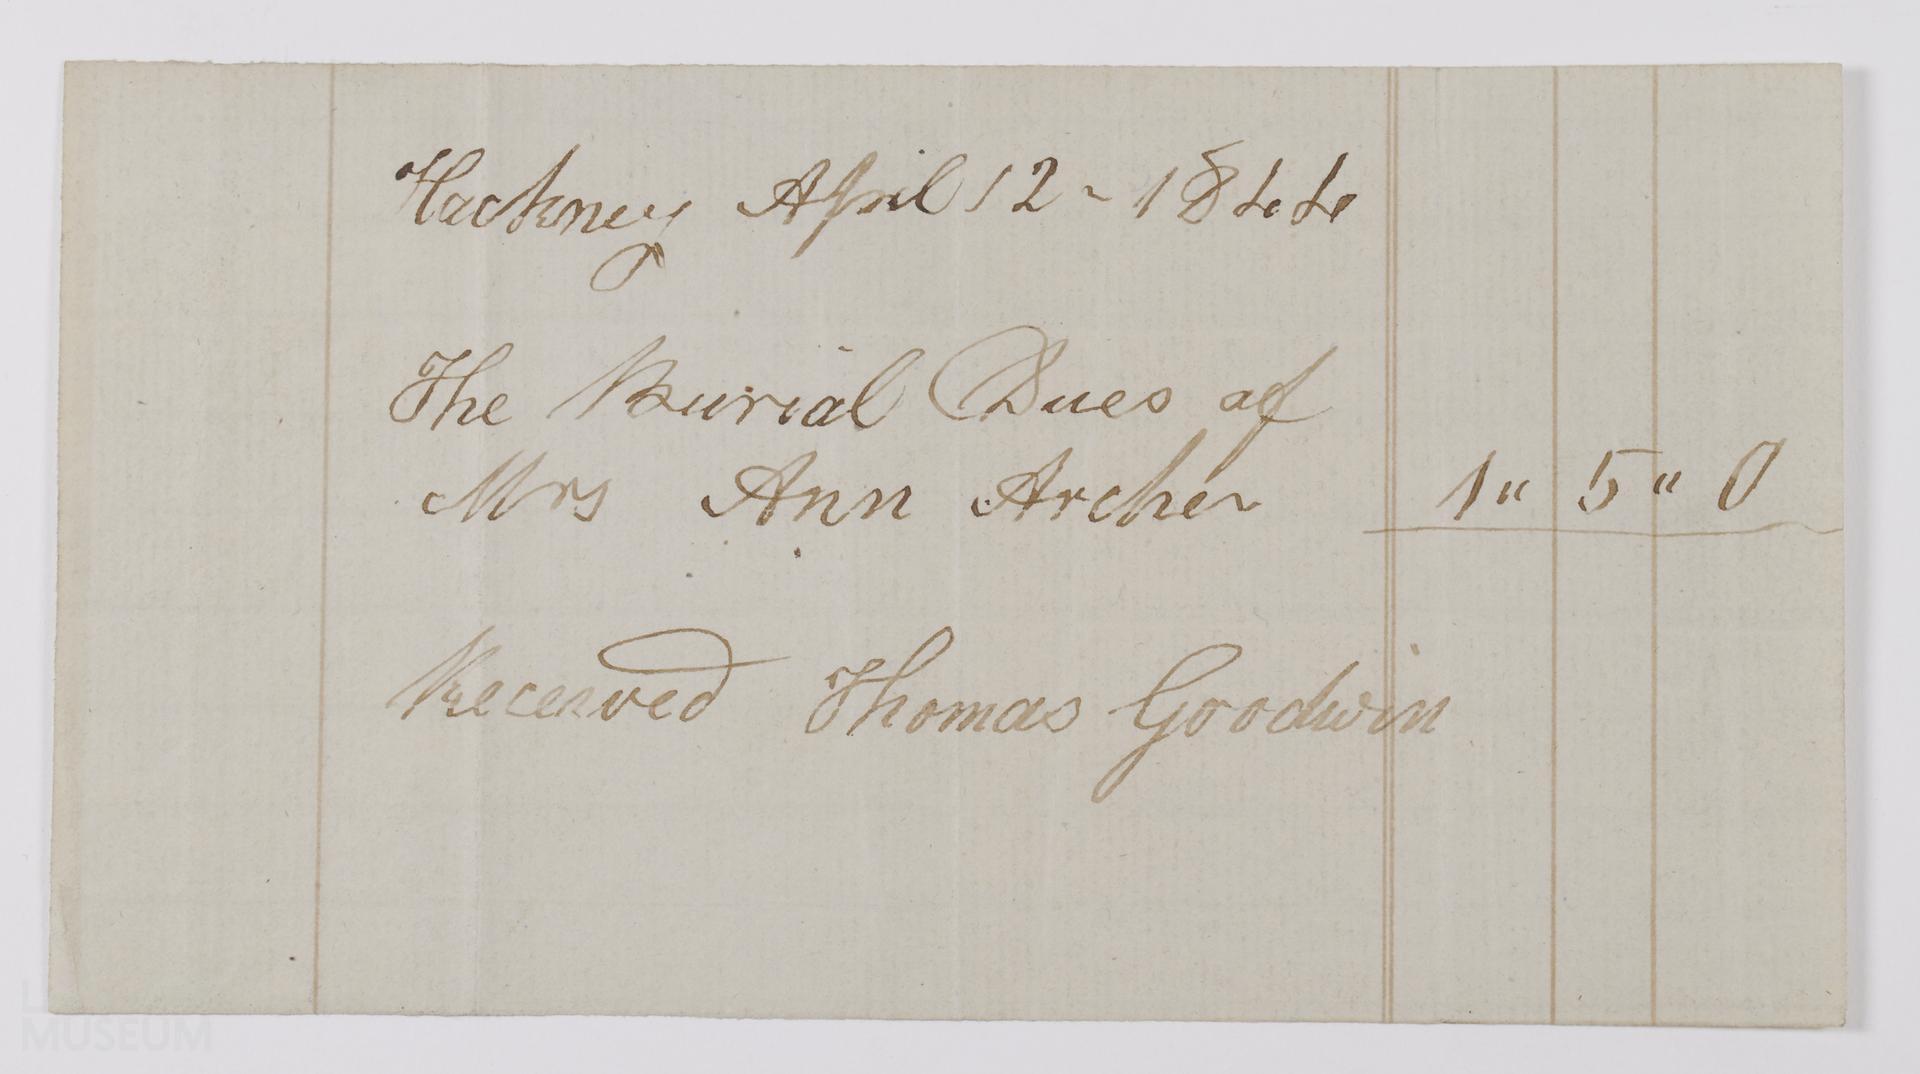 Hackney April 12 ~ 1844
The Burial Dues of
Mrs Ann Archer 1 " 5 " 0
Received Thomas Goodwin
MUSEUM